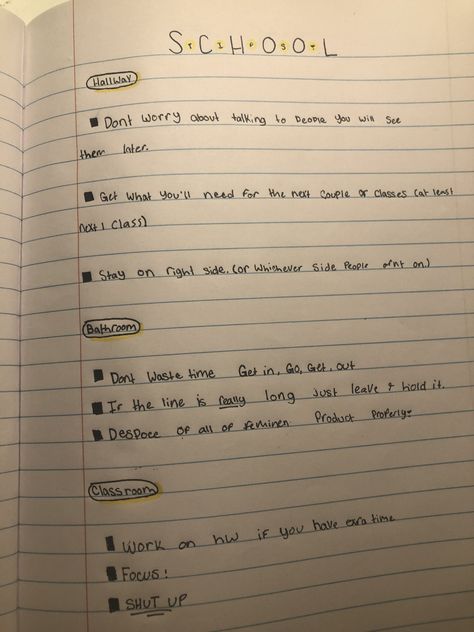 SCHOOL
Hallway
■ Dont worry about talking to people you will see
them later.
■ Get what you'll need for the next couple of classes (at least
next 1 class)
■ Stay on right side. (or whichever side people arnt on.)
Bathroom
■ Dont waste time Get in, Go, Get, out
■ If the line is really long Just leave & hold it.
■ Despoce of all of feminen Product Properly!
Classroom
■ Work on hw if you have exra time
■ Focus!
■ SHUT UP